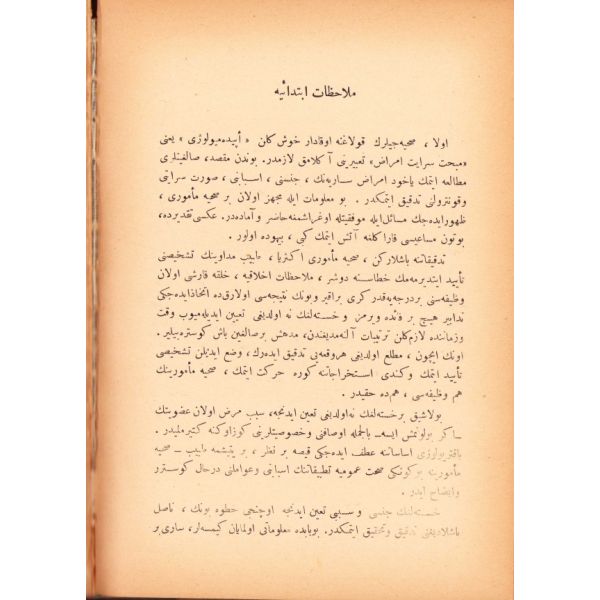 ملاحظات ابتدائيه
اولا ، صحيه‌جيلرك قولاغنه اوقادار خوش كلن « اپيده‌ميولوژى » يعنى
« مبحث سرايت امراض » تعبيرينى آ كلامق لازمدر. بوندن مقصد، صالغينلرى
مطالعه ايتمك ياخود امراض ساريه‌نك ، جنسنى ، اسبابنى ، صورت سرايتى
وقونترولنى تدقيق ايتمكدر . بو معلومات ايله مجهز اولان بر صحيه مأمورى ،
ظهورايده‌جك مسائل‌ايله موفقيتله اوغراشمغه‌حاضر وآماده‌در. عكسى تقديرده،
بوتون مساعيسى قارا كلغه آتش ايتمك كبى ، بيهوده اولور .
تدقيقاتنه باشلاركن ، صحيه مأمورى اكثريا ، طبيب مداوينك تشخيصنى
تأييد ايتديرمه‌مك خطاسنه دوشر ، ملاحظات اخلاقيه ، خلقه قارشى اولان
وظيفه‌سنى بردرجه‌يه‌قدر كرى براقير وبونك نتيجه‌سى اولارق‌ده اتخاذايده‌جكى
تدابير هيچ بر فائده ويرمز و خسته‌لغك نه اولديغى تعيين ايديله‌ميوب وقت
وزماننده لازم‌كلن ترتيبات آلنه‌مديغندن، مدهش برصالغين باش كوستره‌بيلير.
اونك ايچون ، مطلع اولديغى هروقعه‌يى تدقيق ايده‌رك ، وضع ايديلن تشخيصى
تأييد ايتمك وكندى استخراجاتنه كوره حركت ايتمك ، صحيه مأمورينك
هم وظيفه‌سى ، هم‌ده حقيدر .
بولاشيق برخسته‌لغك نه‌اولديغى تعين ايدنجه، سبب مرض اولان عضويتك
ساكر بولونمش ايسه‌ـ بالجمله اوصافنى وخصوصيتلرينى كوزاوكنه كتيرمليدر .
باقتريولوژى اساساتنه عطف ايده‌جكى قيصه بر نظر ، بر يتيشمه طبيب ـ صحيه
مأمورينه بوكونكى صحت عموميه تطبيقاتنك اسبابنى وعواملنى درحال كوسترر
وايضاح ايدر .
خسته‌لغك جنسى و سببى تعين ايدنجه اوچنجى خطوه بونك ، ناصل
باشلاديغنى تدقيق وتحقيق ايتمكدر. بوبابده معلوماتى اولمايان كيمسه‌لر، سارى بر